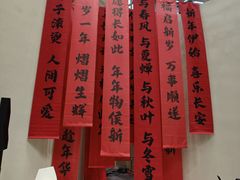 新年伊始 喜乐长安
福启新岁 万事顺遂
与春风 与夏蝉 与秋叶 与冬雪
愿得长如此 年年物候新
岁一年 熠熠生辉
子滚烫 人间可爱
趁年华